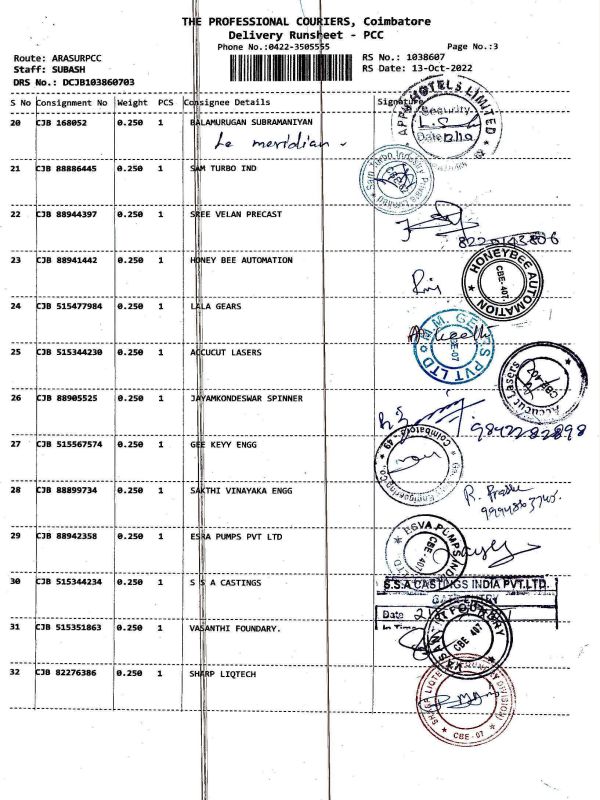 THE PROFESSIONAL COURIERS, Coimbatore
Delivery Runsheet - PCC
Phone No.:0422-3505555
Page No.:3
Route: ARASURPCC
RS No.: 1038607
Staff: SUBASH
RS Date: 13-Oct-2022
DRS No.: DCJB103860703
S No Consignment No Weight PCS Consignee Details Signature
20 CJB 168052 0.250 1 BALAMURUGAN SUBRAMANIYAN
Le meridian -
HOTELS LIMITED
Security
Date
21 CJB 88886445 0.250 1 SAM TURBO IND
Sam Turbo Industry Private Limited
22 CJB 88944397 0.250 1 SREE VELAN PRECAST
8220143806
23 CJB 88941442 0.250 1 HONEY BEE AUTOMATION
HONEYBEE AUTOMATION
CBE-407
24 CJB 515477984 0.250 1 LALA GEARS
M.M. PVT LTD
25 CJB 515344230 0.250 1 ACCUCUT LASERS
Accucut Lasers
CBE-407
26 CJB 88905525 0.250 1 JAYAMKONDESWAR SPINNER
9842282898
27 CJB 515567574 0.250 1 GEE KEYY ENGG
Coimbatore - 49
Engineering Co
28 CJB 88899734 0.250 1 SAKTHI VINAYAKA ENGG
29 CJB 88942358 0.250 1 ESRA PUMPS PVT LTD
ESVA PUMPS INDIA LTD
CBE-407
30 CJB 515344234 0.250 1 S S A CASTINGS
S.S.A CASTINGS INDIA PVT.LTD.
GATE ENTRY
Date
In Time
31 CJB 515351863 0.250 1 VASANTHI FOUNDARY.
VASANTHI FOUNDRY
CBE 407
32 CJB 82276386 0.250 1 SHARP LIQTECH
SHARP LIQTECH DIVISION)
CBE-07